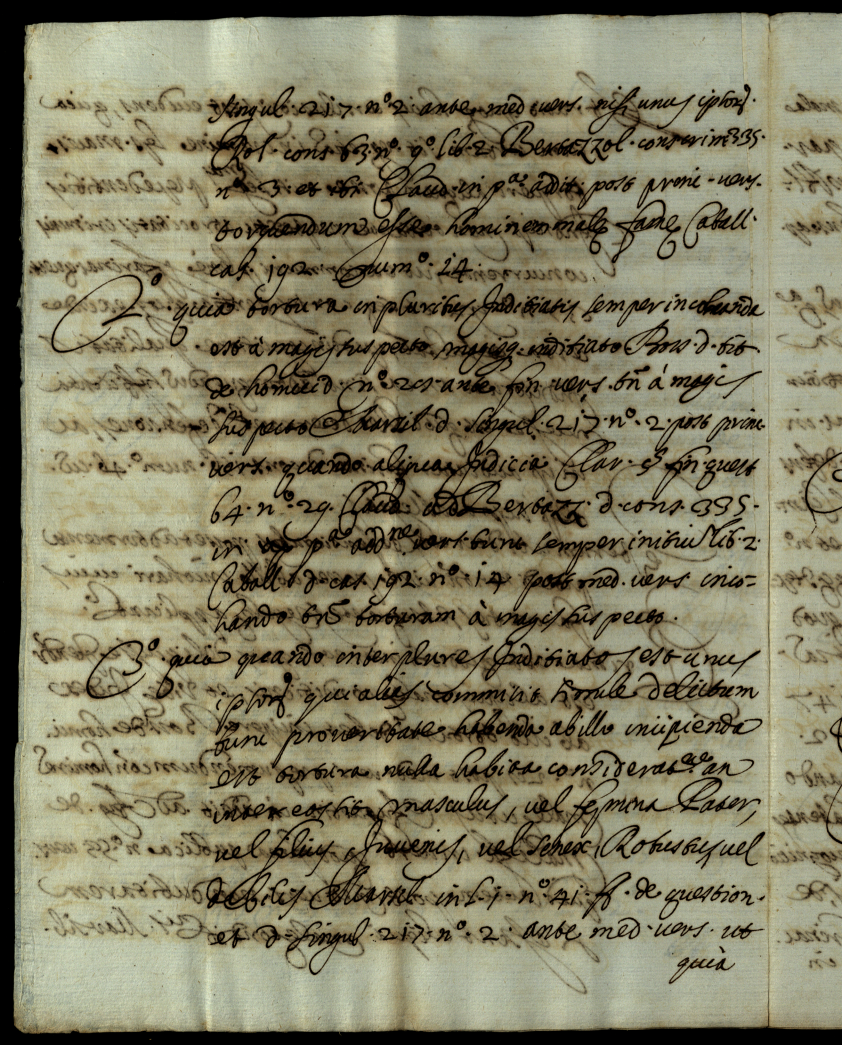 singul. 217. nº 2 ante med. vers. nisi unus ipsor.
Rol. cons 63 nº. 9º lib. 2. Bertazzol. cons crim 335.
nº. 3. et ibi Claud. in pª addit. post princ. vers.
torquendum esse hominem malę famę Caball.
cas. 192. num. 14.
2º. quia tortura in pluribus Inditiatis semper incohanda
est à magis suspecto, magisq. inditiato Boss. d. tit.
de homicid. nº. 21 ante fin vers. tn̄ à magis
suspecto Marsil. d. singul. 217. nº. 2. post princ.
vers. quando aliqua Indicia Clar. § fin. quest
64. nº. 29. Claud. ad Bertazz. d. cons. 335.
in pª addne vers. tunc semper initiū lib. 2
Caball. d. cas. 192. nº. 14 post med. vers. inco-
hando tn̄ torturam à magis suspecto.
3º. quia quando inter plures Inditiatos est unus
ipsor. qui alias commisit simile delictum
tunc pro veritate habenda ab illo incipienda
est tortura nulla habita considerate an
inter eos sit masculus, vel femina Pater,
vel filius, Juvenis, vel senex, Robustus, vel
debilis Marsil. in l. 1. nº. 41. ff. de question.
et d. singul. 217. nº. 2. ante med. vers. ut
quia